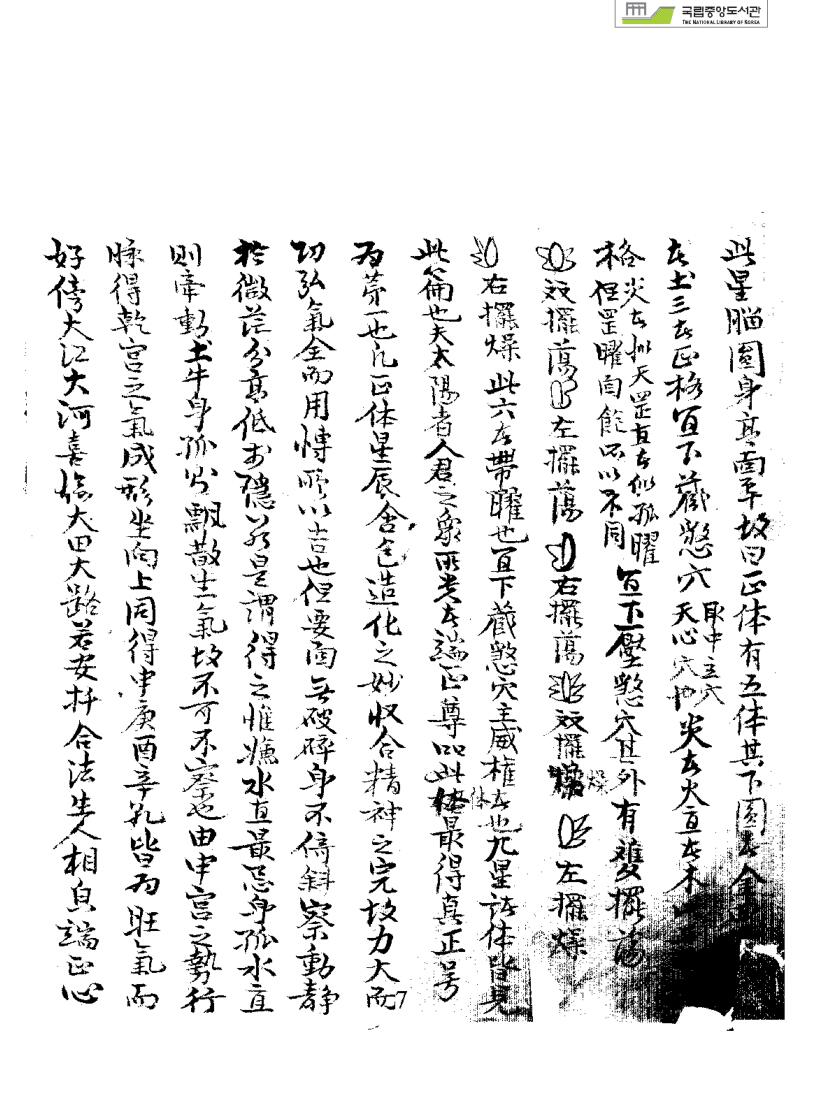 국립중앙도서관
THE NATIONAL LIBRARY OF KOREA
此星腦圓身高面平故曰正体有五体其下圓者金
者土三者正格宜下藏煞穴 取中立穴 天心穴也 炎者火直者木
格 炎者拟天罡直者似孤曜 但罡曜面飽 所以不同 宜下壓煞穴其外有雙擺蕩
双擺蕩 左擺蕩 右擺蕩 双擺燥 左擺燥
右擺燥 此六者帶曜也宜下藏煞穴主威權者也九星諸体皆見
此篇也夫太陽者人君之象所貴者端正尊品此体最得真正号
為第一也凡正体星辰含包造化之妙收合精神之完故力大而
功弘氣全而用慱所以吉也但要面无破碎身不倚斜察動静
於微茫分高低於隱若是謂得之惟嫌水直最忌身孤水直
則牽動土牛身孤必飄散生氣故不可不察也由中宮之勢行
脉得乾宮之氣成形坐向上同得申庚酉辛乳皆为旺氣而
好傍大江大河喜臨大田大路若安扦合法生人相皃端正心
7